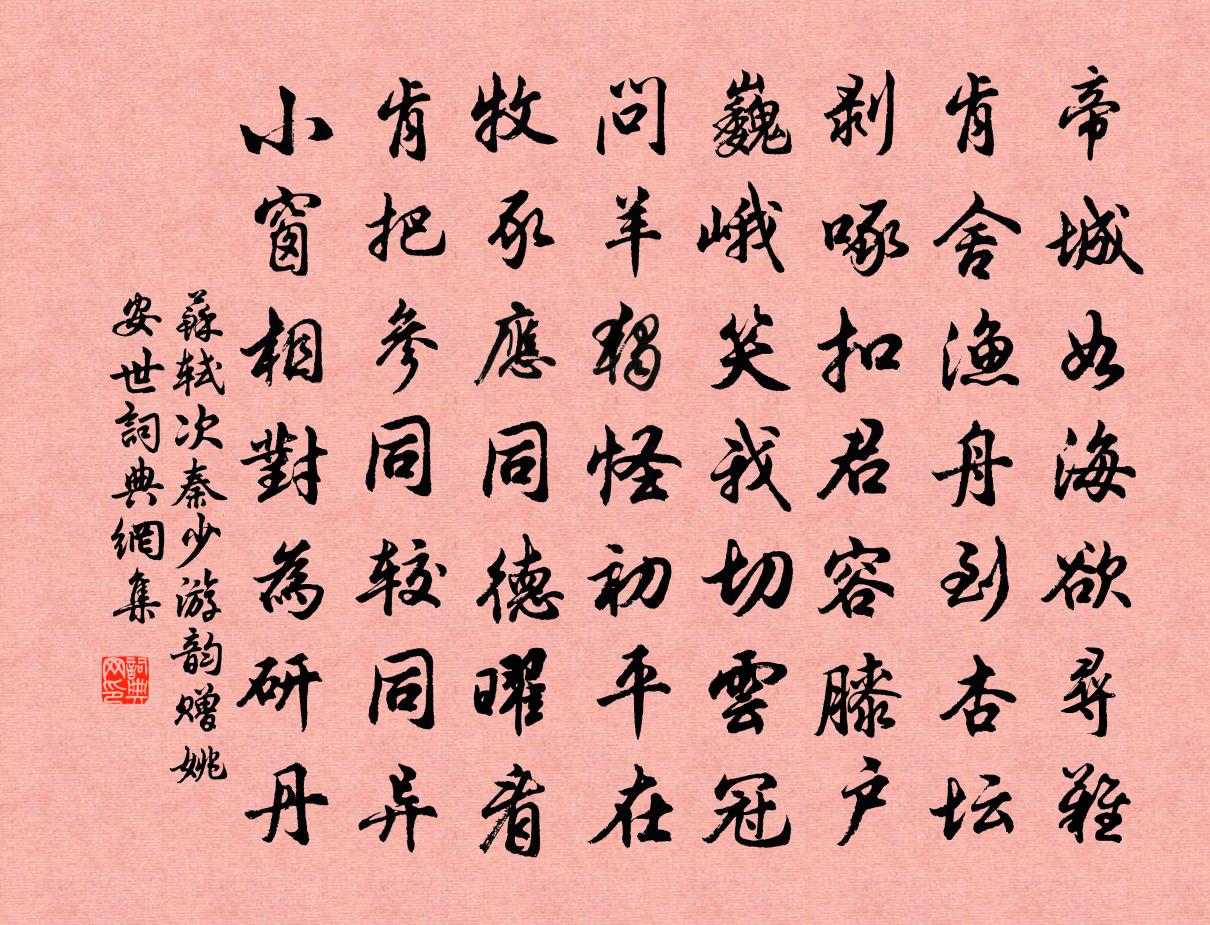 帝城如海欲尋難
肯舍漁舟到杏坛
剥啄扣君容膝户
巍峨笑我切雲冠
問羊獨怪初平在
牧豕應同德曜看
肯把參同较同异
小窗相對為研丹
蘇轼次秦少游韵赠姚
安世詞典網集
詞典
网印